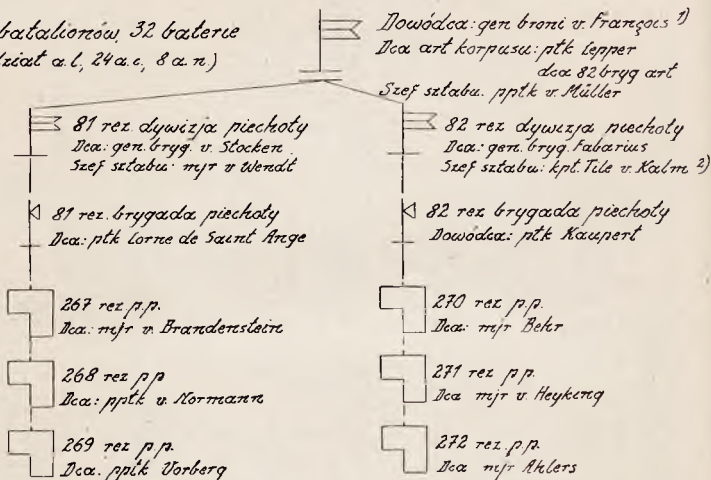 batalionów, 32 baterie
dział a.l, 24 a.c, 8 a.n.)
Dowódca: gen broni v. François 1)
Dca art korpusu: płk Lepper
dca 82 bryg art
Szef sztabu. ppłk v. Müller
81 rez. dywizja piechoty
Dca: gen. bryg. v. Stocken
Szef sztabu: mjr v Wendt
81 rez. brygada piechoty
Dca: płk Lorne de Saint Ange
267 rez p.p.
Dca: mjr v. Brandenstein
268 rez p p
Dca: ppłk v. Normann
269 rez p.p.
Dca. ppłk Vorberg
82 rez dywizja piechoty
Dca: gen. bryg. Fabarius
Szef sztabu: kpt. Tile v. Kalm 2)
82 rez brygada piechoty
Dowódca: płk Kaupert
270 rez p.p.
Dca: mjr Behr
271 rez p.p.
Dca mjr v. Heyking
272 rez. p.p.
Dca mjr Ahlers